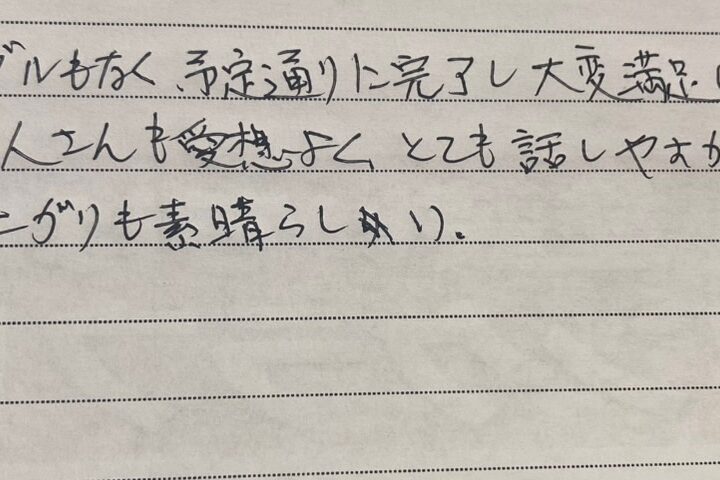 ブルもなく、予定通りに完了し大変満足
人さんも愛想よく、とても話しやすか
がりも素晴らしい。